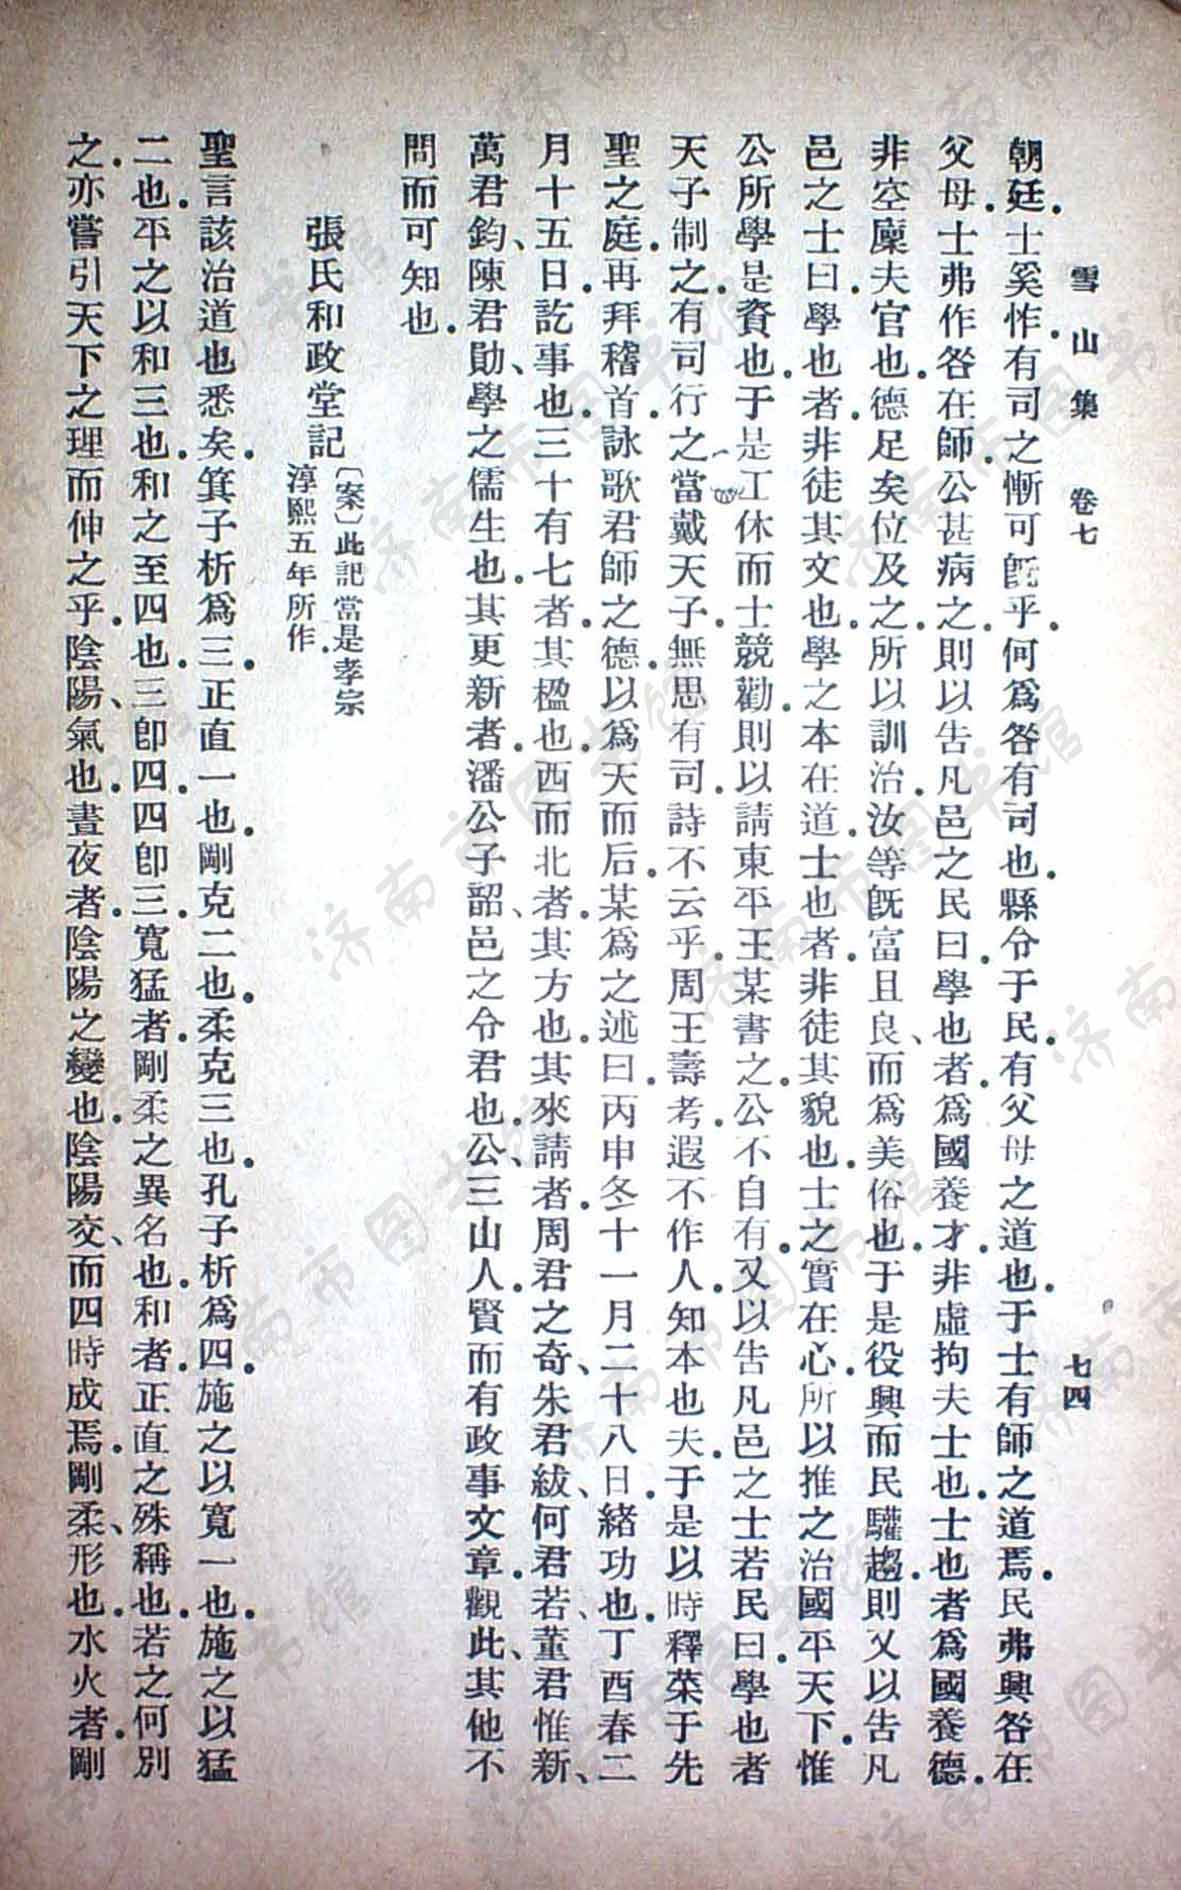 雪山集　卷七　七四
朝廷。士奚怍。有司之慚可旣乎。何爲咎有司也。縣令于民。有父母之道也。于士有師之道焉。民弗興咎在
父母。士弗作咎在師。公甚病之。則以告凡邑之民曰。學也者。爲國養才。非虛拘夫士也。士也者爲國養德。
非空廩夫官也。德足矣位及之。所以訓治。汝等旣富且良、而爲美俗也。于是役興而民驩趨。則又以告凡
邑之士曰。學也者。非徒其文也。學之本在道。士也者。非徒其貌也。士之實在心。所以推之治國平天下。惟
公所學是資也。于是工休而士競勸。則以請東平王某書之。公不自有。又以告凡邑之士若民曰。學也者
天子制之。有司行之。當戴天子。無思有司。詩不云乎。周王壽考。遐不作人。知本也夫。于是以時釋菜于先
聖之庭。再拜稽首。詠歌君師之德。以爲天而后。某爲之述曰。丙申冬十一月二十八日。緒功也。丁酉春二
月十五日。訖事也。三十有七者。其楹也。西而北者。其方也。其來請者。周君之奇、朱君紱、何君若、董君惟新、
萬君鈞、陳君勛、學之儒生也。其更新者。潘公子韶、邑之令君也。公、三山人。賢而有政事文章。觀此、其他不
問而可知也。
張氏和政堂記〔案〕此記當是孝宗
淳熙五年所作。
聖言該治道也悉矣。箕子析爲三。正直一也。剛克二也。柔克三也。孔子析爲四。施之以寬一也。施之以猛
二也。平之以和三也。和之至四也。三卽四。四卽三。寬猛者。剛柔之異名也。和者。正直之殊稱也。若之何別
之。亦嘗引天下之理而伸之乎。陰陽、氣也。晝夜者。陰陽之變也。陰陽交、而四時成焉。剛柔、形也。水火者。剛